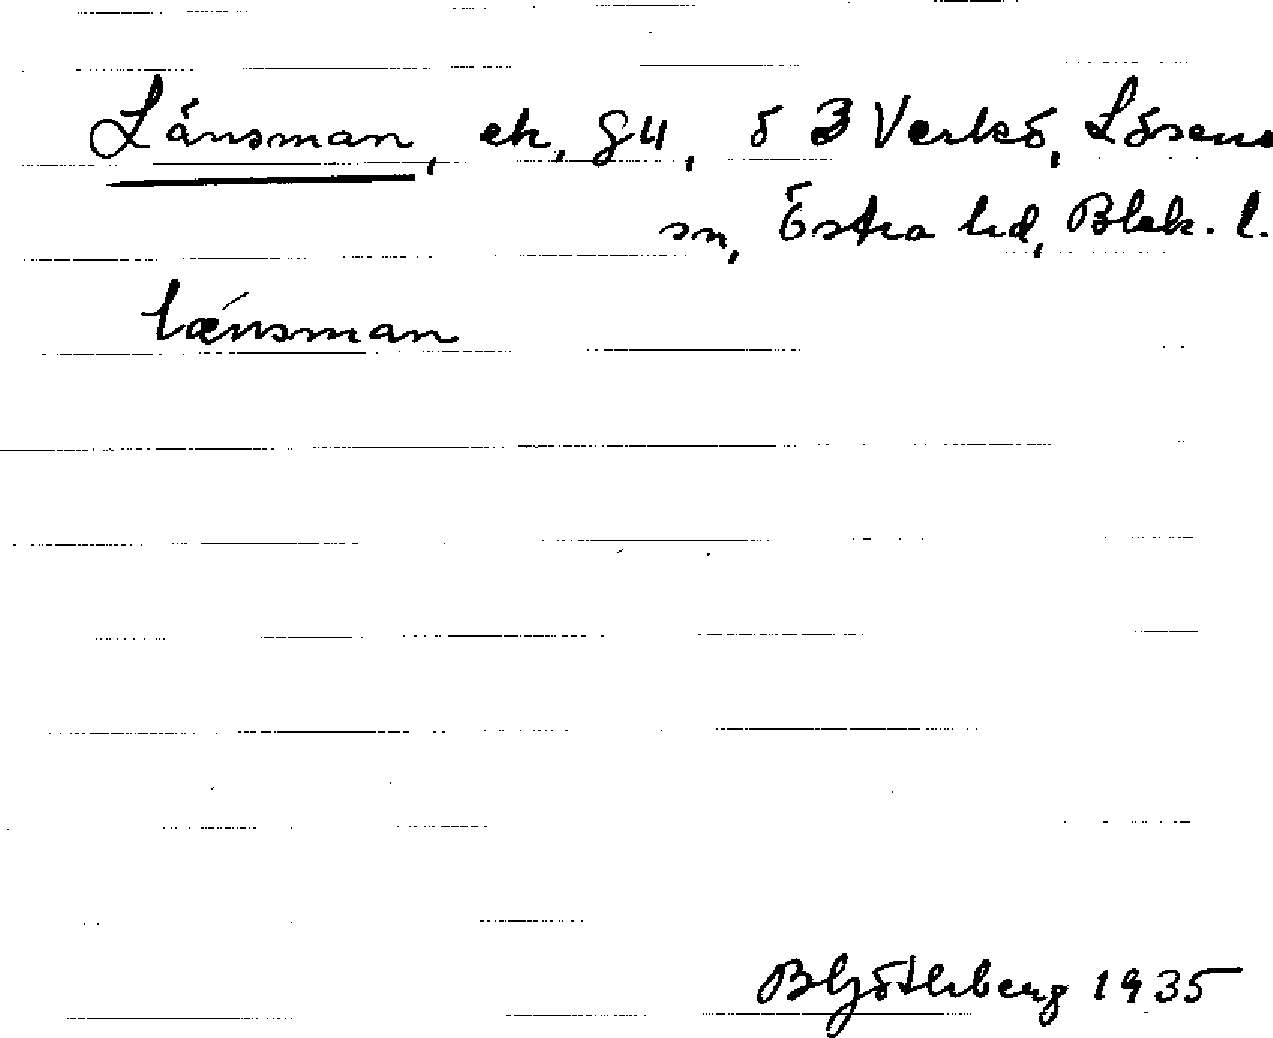 Länsman, ek, g4, ö 3 Verkö, Lösens
sn, Östra hd, Blek. l.
lǽnsman
B Götherberg 1935